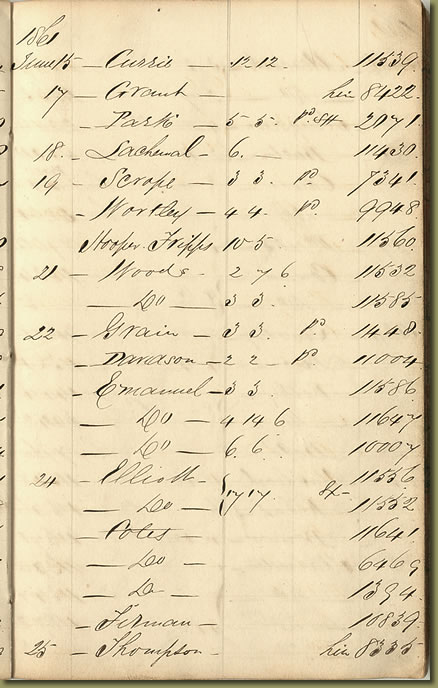 1861
June 15 — Currie — 12 12. 11539.
17 — Grant — 8422.
— Park — 5 5. Pd. 2071.
18. — Lachenal — 6. — 11430.
19 — Scrope — 3 3. Pd. 7341.
— Wortley — 4 4. Pd. 9948
Hooper. Fripps 10 5. 11560.
21 — Woods - 2 7 6 11532
— Do — 3 3. 11585.
22 — Grain — 3 3. Pd. 1448.
— Davidson — 2 2 — Pd. 11004.
— Emanuel — 3 3. 11586.
— Do — 4 14 6 11647
— Do — 6. 6. 10007
24 — Elliott — 11556.
— Do — 17 17 11552
— Coles — 11641
— Do — 6469
— Do — 1394.
— Firman — 10839.
25 — Thompson — 8335